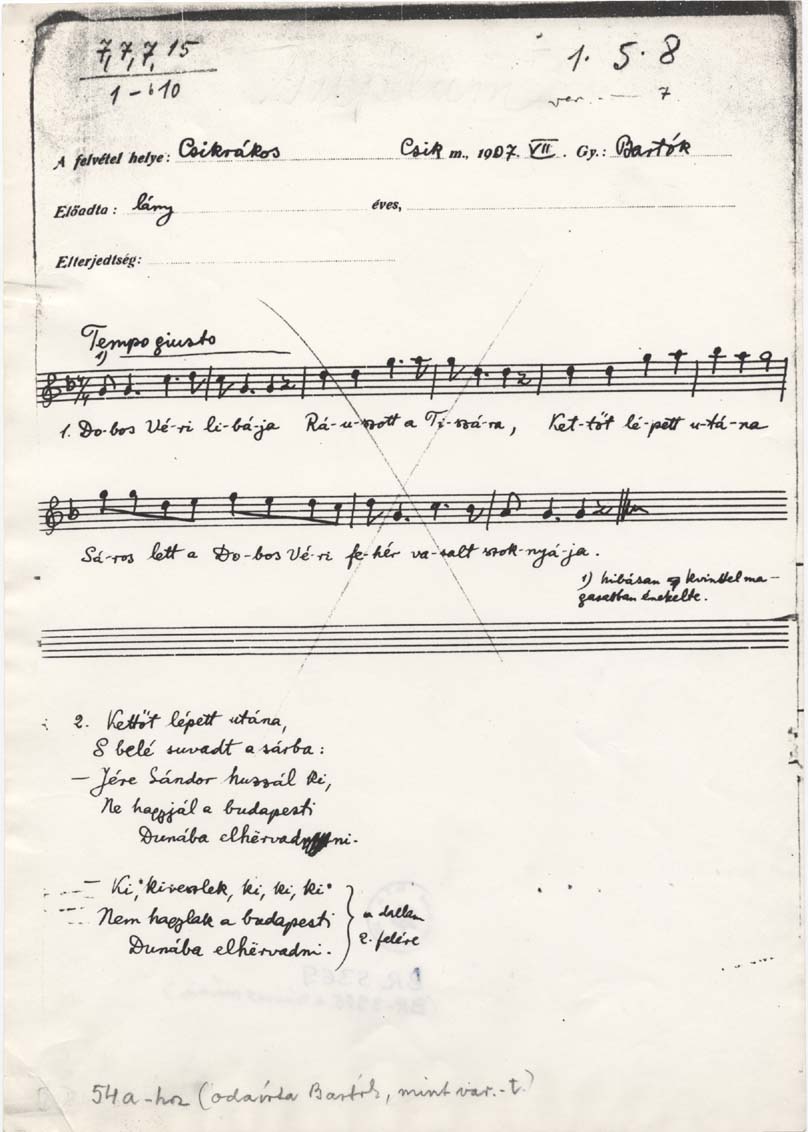 7, 7, 7, 15
1. 5. 8
1 - b10
var. — 7
A felvétel helye: Csikrákos Csik m., 1907. VII. Gy.: Bartók
Előadta: lány éves,
Elterjedtség:
Tempo giusto
1)
7/4
1. Do-bos Vé-ri li-bá-ja Rá-u-szott a Ti-szá-ra, Ket-tőt lé-pett u-tá-na
Sá-ros lett a Do-bos Vé-ri fe-hér va-salt szok-nyá-ja.
1) hibásan kvinttel ma-
gasabban énekelte.
2. Kettőt lépett utána,
S belé suvadt a sárba:
— Jére Sándor huzzál ki,
Ne hagyjál a budapesti
Dunába elhërvadni.
— Ki, kiveszlek, ki, ki, ki
Nem hagylak a budapesti
Dunába elhërvadni.
a dallam
2. felére
54a-hoz (odaírta Bartók, mint var.-t.)